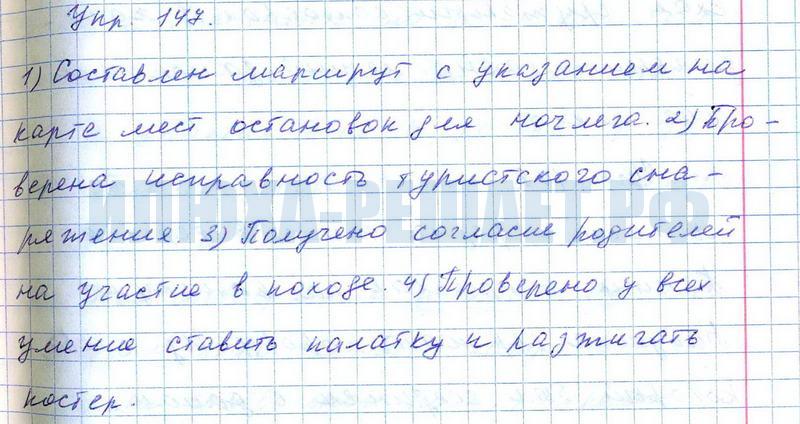 Упр 147.
1) Составлен маршрут с указанием на
карте мест остановок для ночлега. 2) Про-
верена исправность туристского сна-
ряжения. 3) Получено согласие родителей
на участие в походе. 4) Проверено у всех
умение ставить палатку и разжигать
костер.